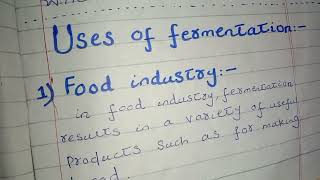 Uses of fermentation:-
1) Food industry:-
in food industry, fermentation
results in a variety of useful
products such as for making